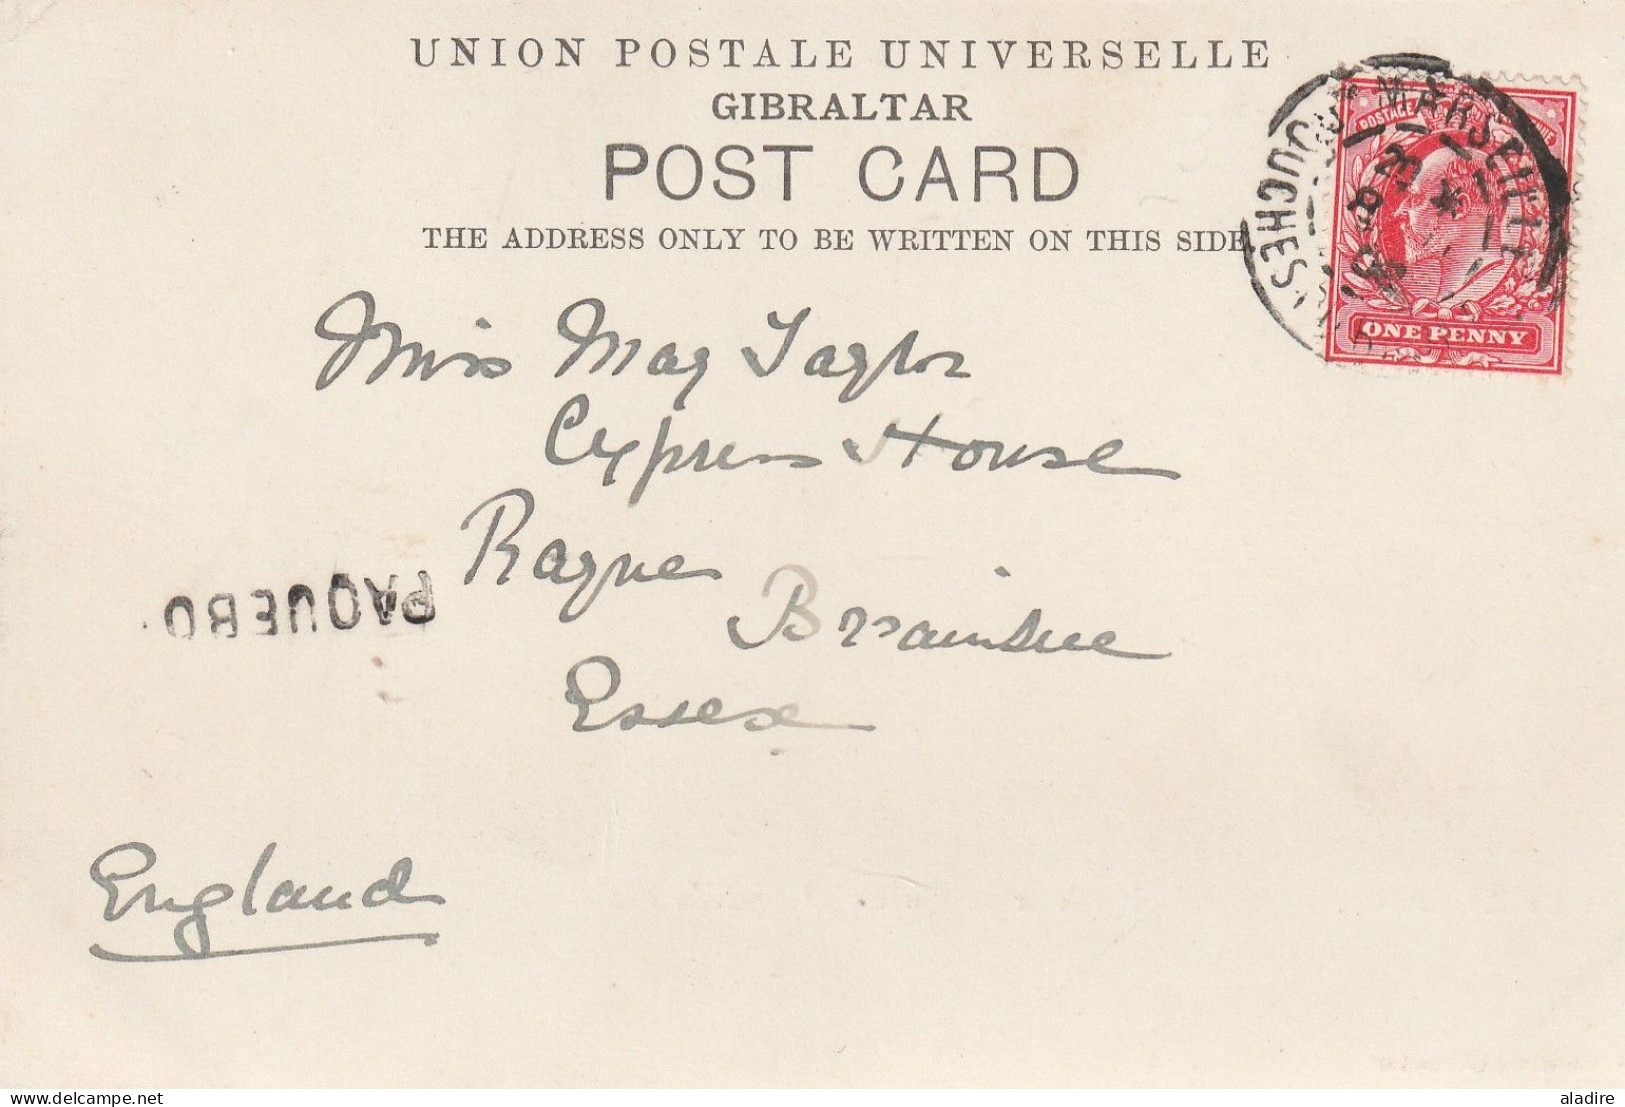 UNION POSTALE UNIVERSELLE
GIBRALTAR
POST CARD
THE ADDRESS ONLY TO BE WRITTEN ON THIS SIDE
POSTAGE
MARSEILLE
BOUCHES DU RHONE
ONE PENNY
Miss May Taylor
Cypress House
Rayne
Braintree
Essex
PAQUEBO
England
delcampe.net
aladire